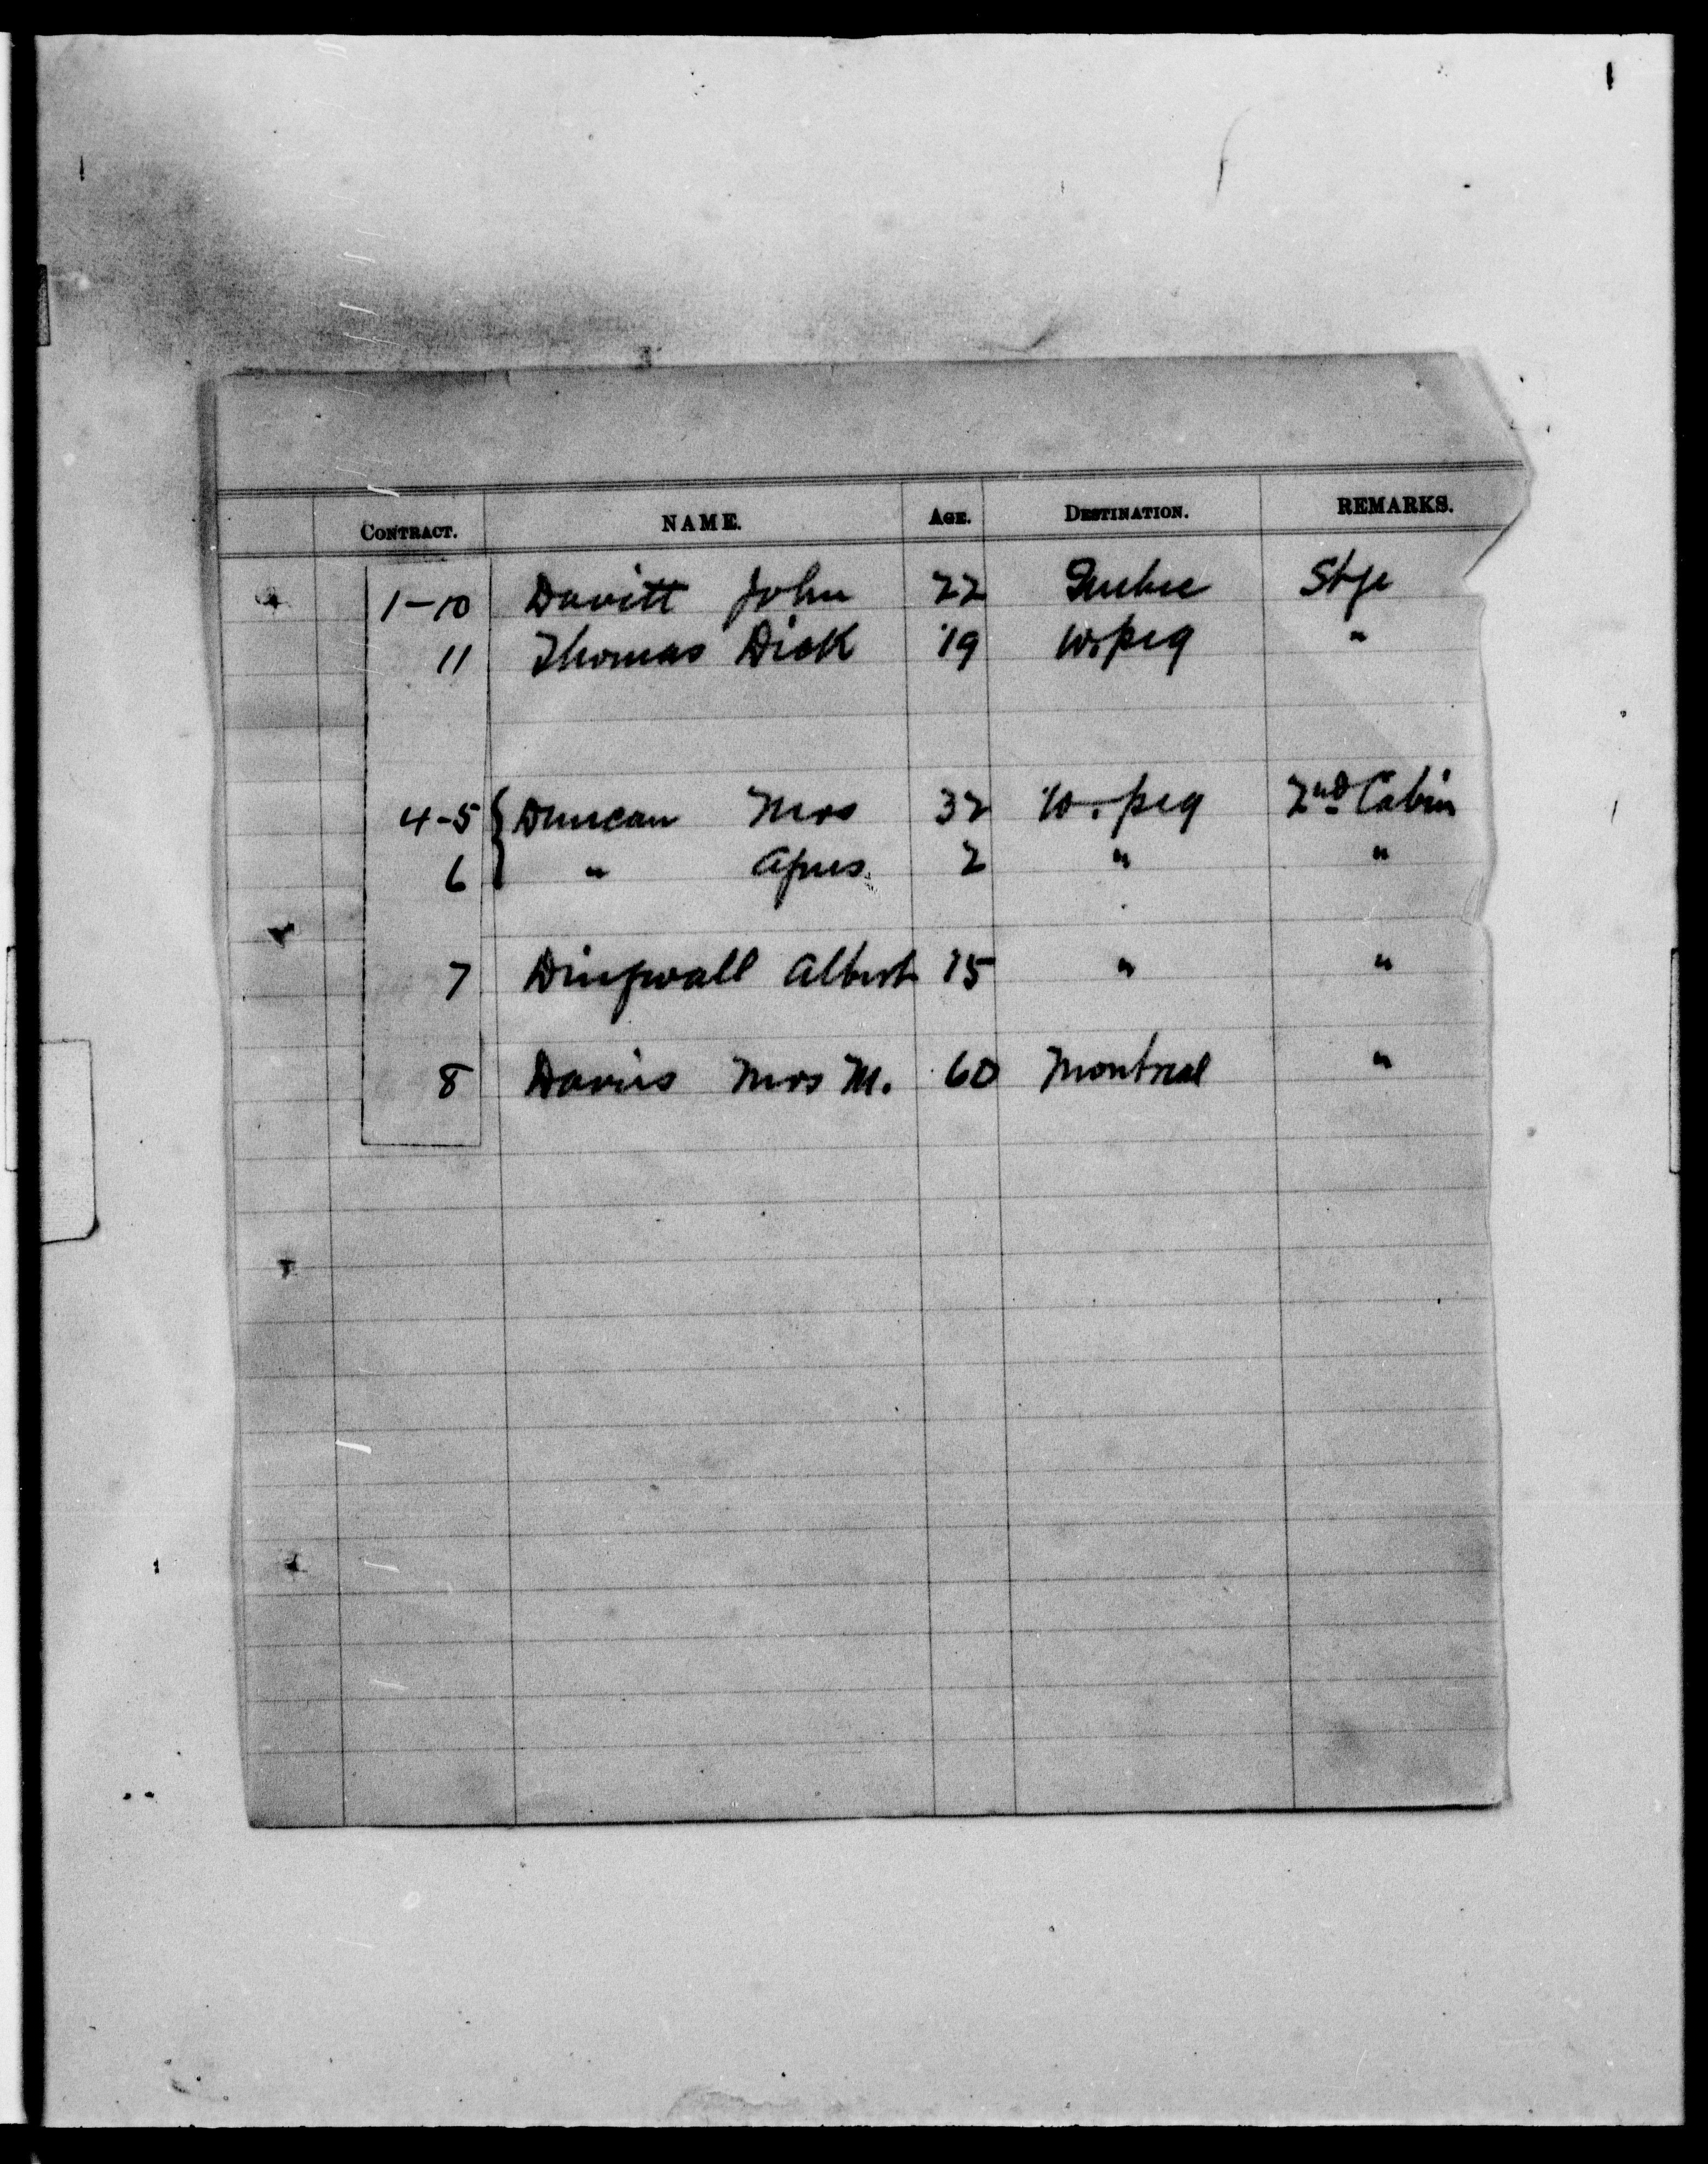 CONTRACT. NAME. AGE. DESTINATION. REMARKS.
1-10 Davitt John 22 Quebec Stge
11 Thomas Dick 19 W.peg "
4-5 { Duncan Mrs 32 W.peg 2nd Cabin
6 " Agnes 2 " "
7 Dingwall Albert 15 " "
8 Davies Mrs M. 60 Montreal "